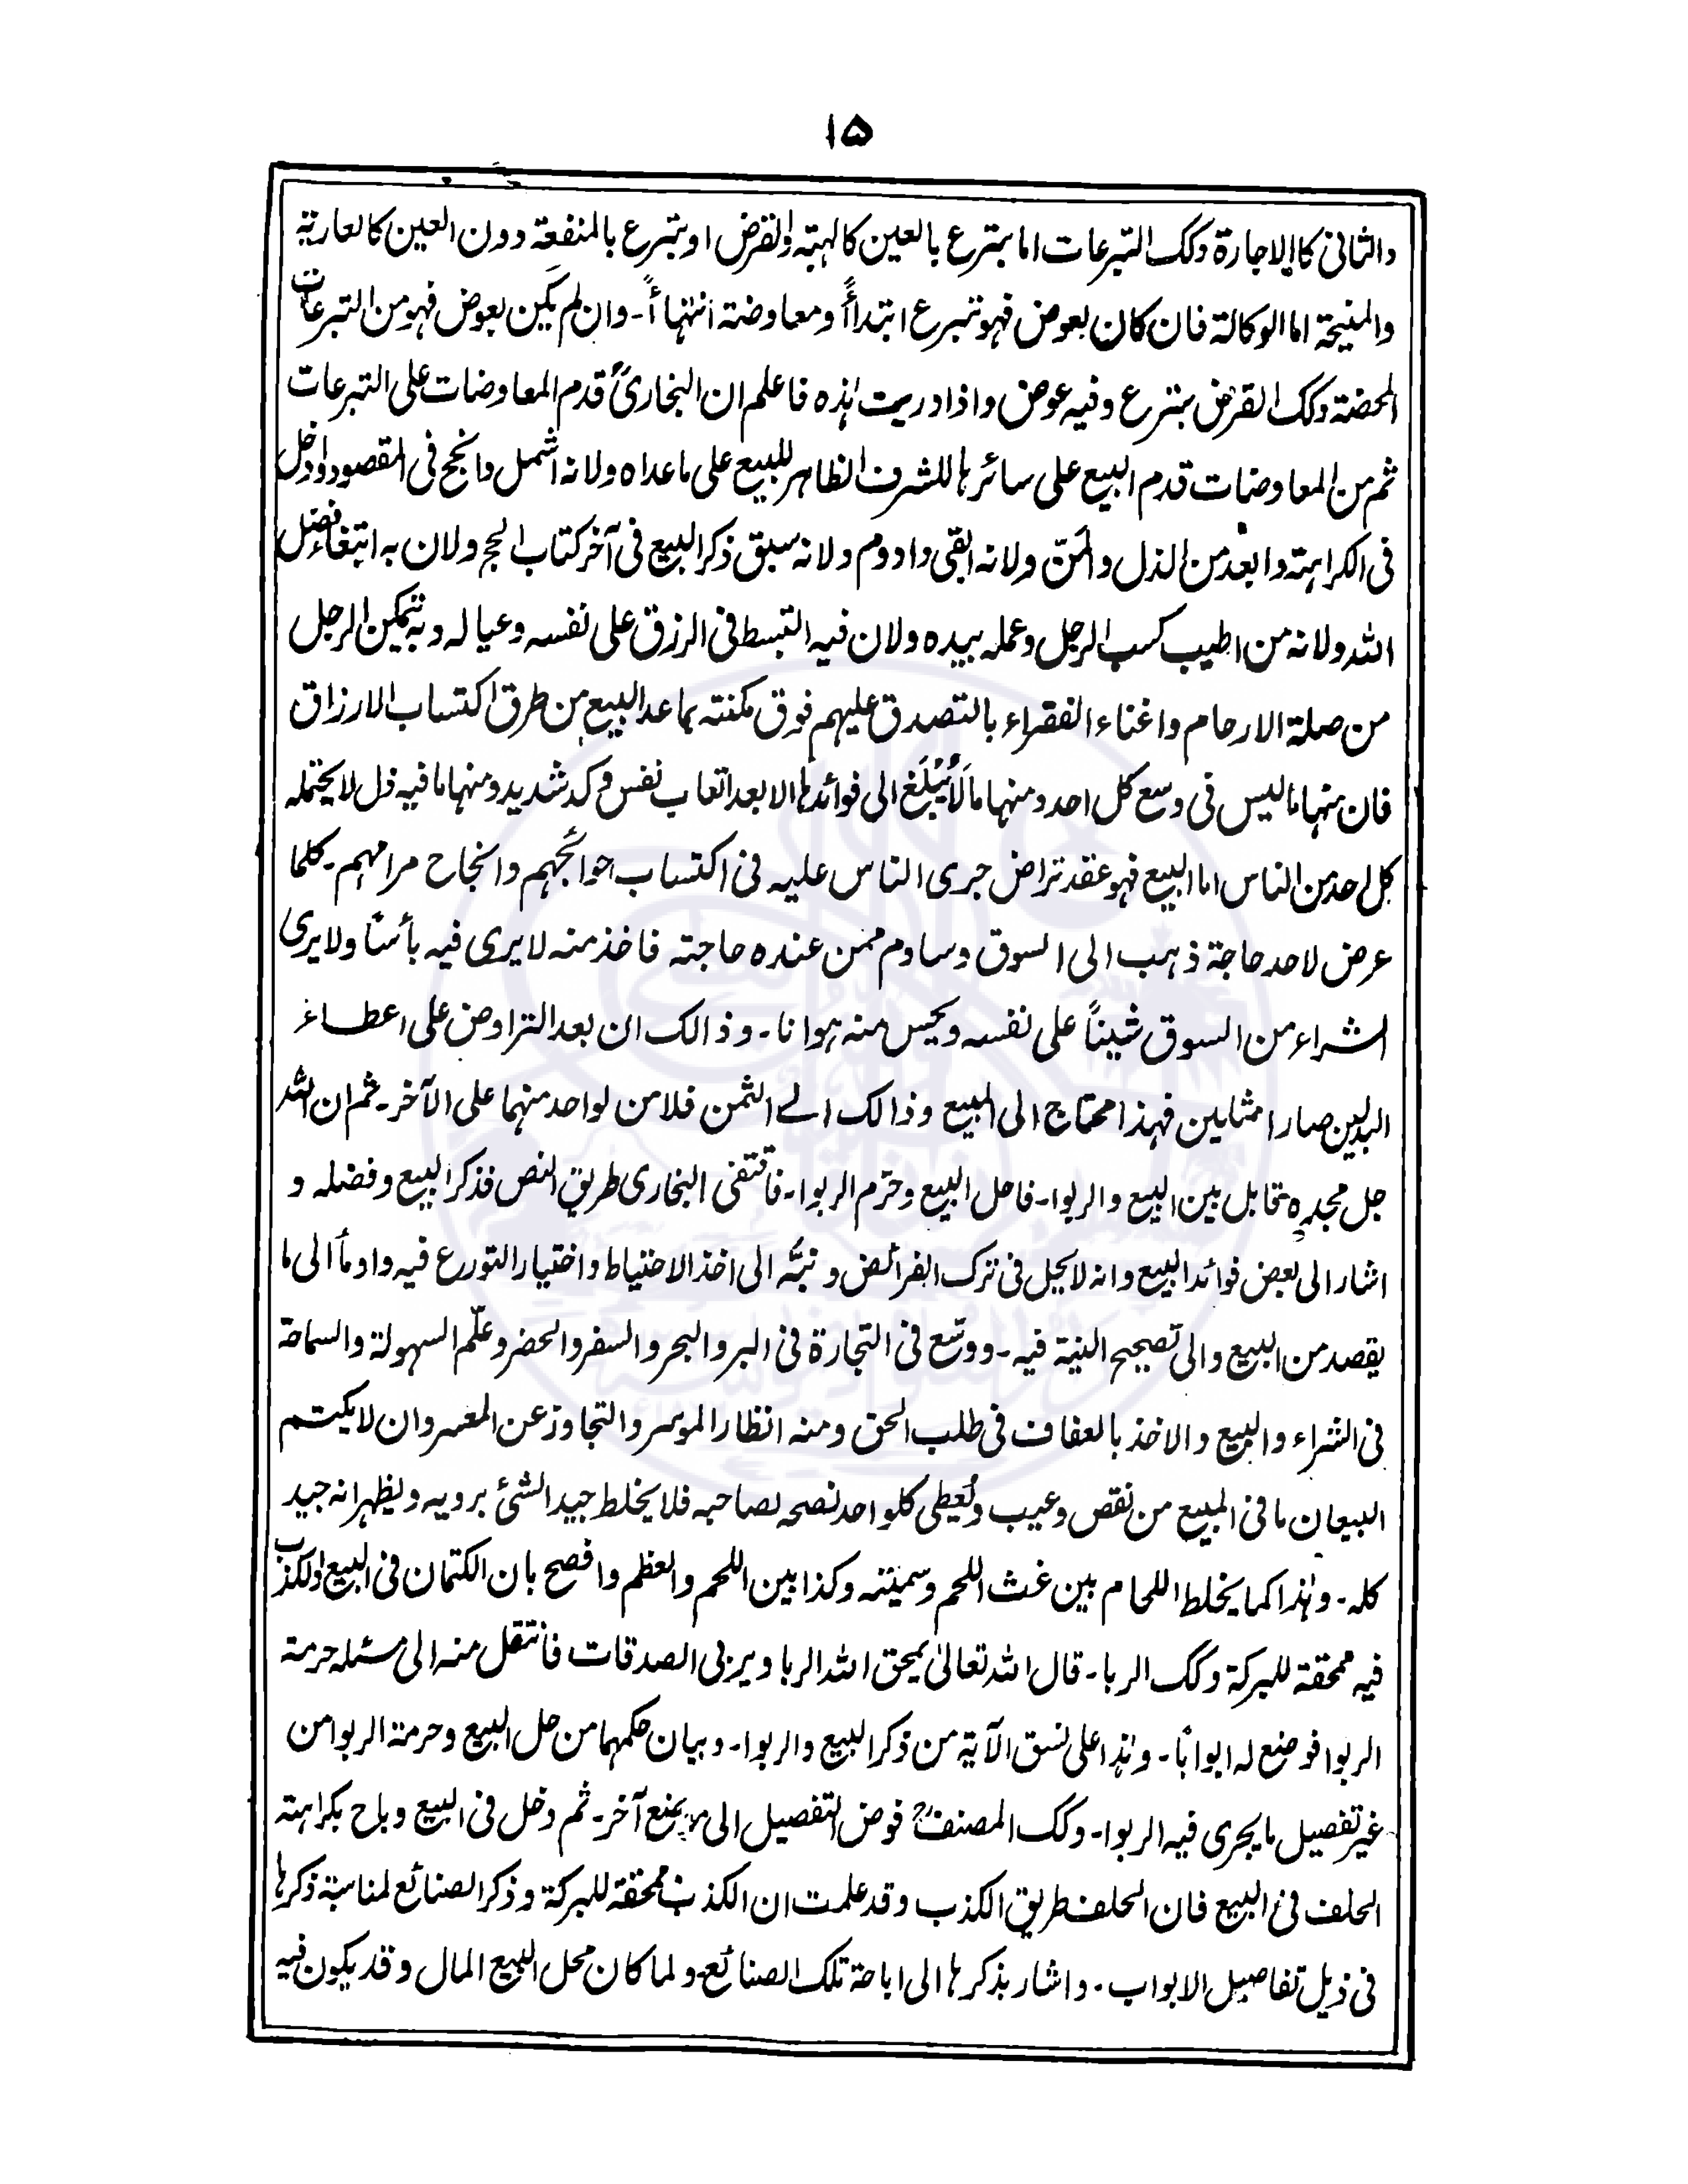 ١٥
والثانی کالاجارة وکک التبرعات اما بتبرع بالعین کالهبة والقرض او بتبرع بالمنفعة دون العین کالعاریة
والمنیحة اما الوکالة فان کان بعوض فهو تبرع ابتداأً ومعاوضة انتهاأً۔ وان لم یکن بعوض فهو من التبرعات
المحضة وکک القرض بتبرع وفیه عوض واذا دریت هذه فاعلم ان البخاریؒ قدم المعاوضات علی التبرعات
ثم من المعاوضات قدم البیع علی سائرها للشرف الظاهر للبیع علی ما عداه ولانه اشمل وانجح فی المقصود وادخل
فی الکراهة وابعد من الذل والمنّ ولانه ابقی وادوم ولانه سبق ذکر البیع فی آخر کتاب الحج ولان به ابتغاء فضل
الله ولانه من اطیب کسب الرجل وعمله بیده ولان فیه التبسط فی الرزق علی نفسه وعیاله وبه تمکین الرجل
من صلة الارحام واغناء الفقراء بالتصدق علیهم فوق مکنته بما عدا البیع من طرق اکتساب الارزاق
فان منها ما لیس فی وسع کل احد ومنها ما لَا یُبْلَغ الی فوائدها الا بعد اتعاب نفس وکد شدید ومنها ما فیه ذل لا یحتمله
کل احد من الناس اما البیع فهو عقد تراض جری الناس علیه فی اکتساب حوائجهم وانجاح مرامهم۔ کلما
عرض لاحد حاجة ذهب الی السوق وساوم ممن عنده حاجته فاخذ منه لا یری فیه بأساً ولا یری
اشراء من السوق شیناً علی نفسه ویحس منه هوانا۔ وذالک ان بعد التراوض علی اعطاء
البدلین صارا مثلین فهذا محتاج الی المبیع وذالک الے الثمن فلا من لواحد منهما علی الآخر۔ ثم ان الله
جل مجده تقابل بین البیع والربوا۔ فاحل البیع وحرّم الربوا۔ فاقتفی البخاری طریق النص فذکر البیع وفضله و
اشار الی بعض فوائد البیع وانه لا یحیل فی ترک الفرائض ونبّه الی اخذ الاحتیاط واختیار التورع فیه واومأ الی ما
یقصد من البیع والی تصحیح النیة فیه۔ ووسّع فی التجارة فی البر والبحر والسفر والحضر وعلّم السهولة والسماحة
فی الشراء والبیع والاخذ بالعفاف فی طلب الحق ومنه انظار الموسر والتجاوز عن المعسر وان لا یکتم
البیعان ما فی المبیع من نقص وعیب ولیعطی کلواحد نصحه لصاحبه فلا یخلط جید الشئ بردیه ولیظهر انه جید
کله۔ وهذا کما یخلط اللحام بین غث اللحم وسمینه وکذا بین اللحم والعظم وافصح بان الکتمان فی البیع والکذب
فیه ممحقة للبرکة وکک الربا۔ قال الله تعالیٰ یمحق الله الربا ویربی الصدقات فانتقل منه الی مسئله حرمة
الربوا فوضع له ابوابًا۔ وهذا علی نسق الآیة من ذکر البیع والربوا۔ وبیان حکمهما من حل البیع وحرمة الربوا من
غیر تفصیل ما یجری فیه الربوا۔ وکک المصنفؒ فوض التفصیل الی آخر۔ ثم دخل فی البیع وباح بکراهة
الحلف فی البیع فان الحلف طریق الکذب وقد علمت ان الکذب ممحقة للبرکة وذکر الصنائع لمناسبة ذکرها
فی ذیل تفاصیل الابواب۔ واشار بذکرها الی اباحة تلک الصنائع ولما کان محل البیع المال وقد یکون فیه